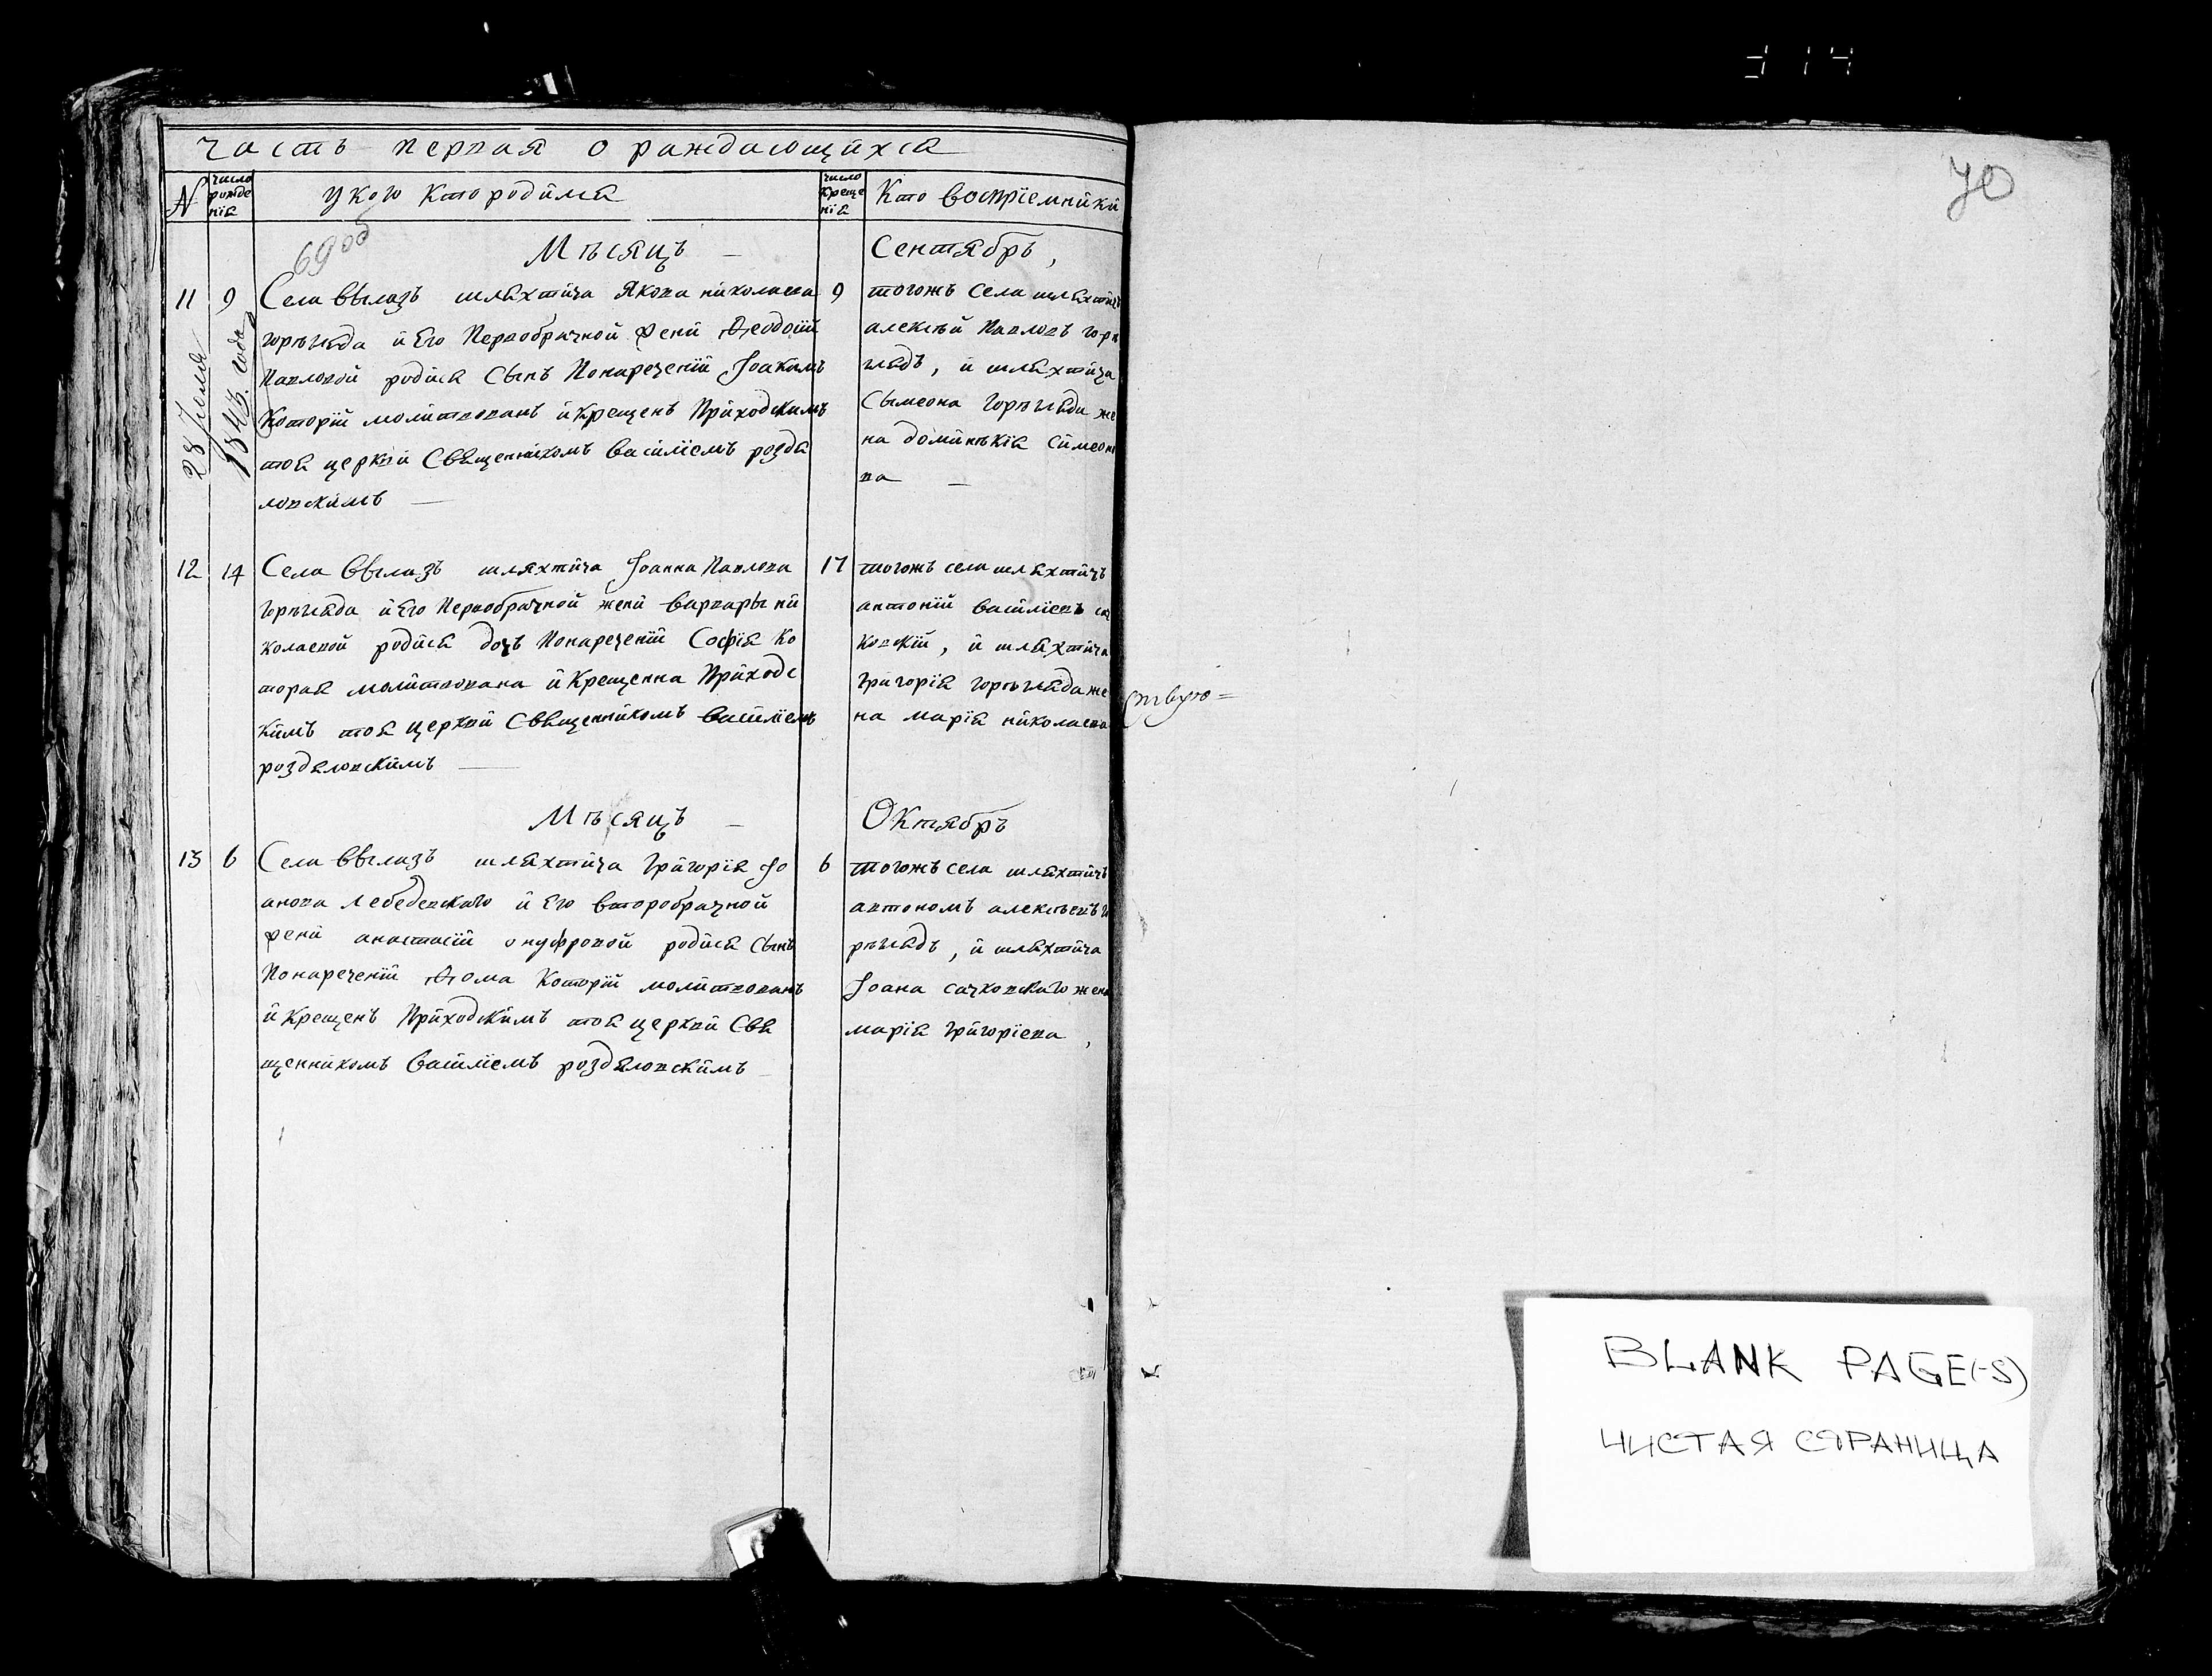 часть первая о раждающихся
№
число рожденія
у кого кто родился
число крещенія
Кто воспріемники
69 об
Мѣсяцъ
Сентябрь,
11 9
28 1843 года
Села Вылазъ шляхтича Якова николаева
горѣгляда и Его Первобрачной жени Ѳеодосій
Павловой родися Сынъ Понареченій Іоакимъ
Которій молитвованъ и Крещенъ Приходскимъ
тоя церкви Священникомъ василіемъ роздя
ловскимъ —
9
тогожъ села шляхтичъ
алексѣй Павловъ горѣ
глядъ, и шляхтича
Сымеона горѣгляда же
на доминѣкія симеоно
ва —
12 14
Села Вылазъ шляхтича Іоанна Павлова
горѣгляда и Его Первобрачной жени варвары ни
колаевой родися дочъ Понареченій Софія Ко
торая молитвована и Крещенна Приходс
кимъ тоя церкви Священникомъ василіемъ
роздяловскимъ —
17
тогожъ села шляхтичъ
антоній василіевъ
ковскій, и шляхтича
григорія горѣгляда же
на марія николаева
ствую=
Мѣсяцъ
Октябрь
13 6
Села Вылазъ шляхтича григорія Іо
анова лебедевскаго и Его второбрачной
жени анастасій онуфровой родися Сынъ
Понареченій Ѳома Которій молитвованъ
и Крещенъ Приходскимъ тоя церкви Свя
щенникомъ василіемъ роздяловскимъ
6
тогожъ села шляхтичъ
автономъ алексѣевъ го
рѣглядъ, и шляхтича
Іоана сачковскаго жена
марія григоріева,
70
BLANK PAGE(-S)
ЧИСТАЯ СТРАНИЦА